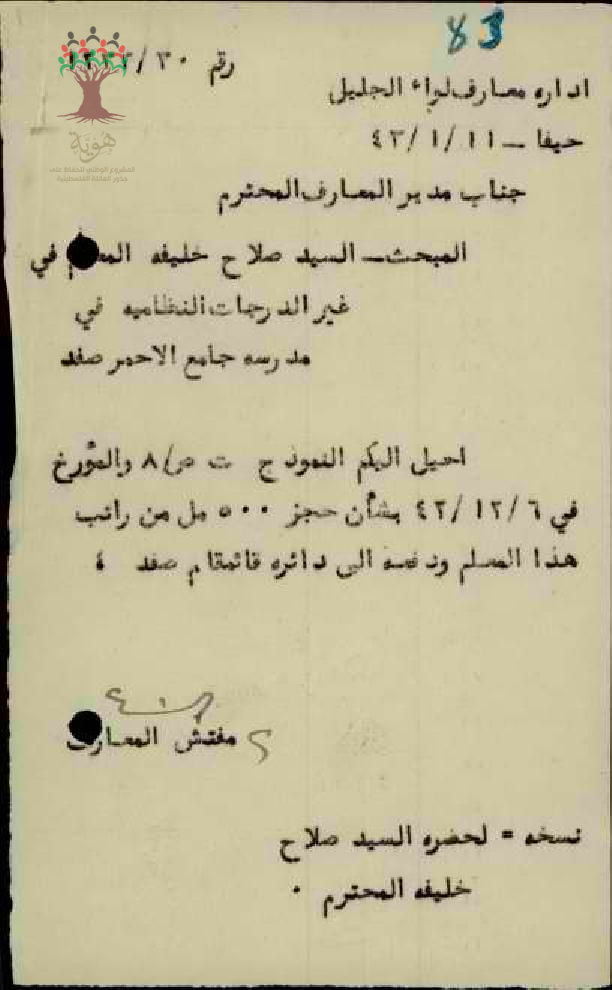 83
رقم ٣٠/
اداره معارف لواء الجليل
حيفا – ٤٣/١/١١
جناب مدير المعارف المحترم
المبحث – السيد صلاح خليفه المعلم في
غير الدرجات النظاميه في
مدرسه جامع الاحمر صفد
احيل اليكم النموذج ت ص/٨ والمؤرخ
في ٤٢/١٢/٦ بشأن حجز ٥٠٠ مل من راتب
هذا المعلم ودفعه الى دائره قائمقام صفد
مفتش المعارف
نسخه = لحضره السيد صلاح
خليفه المحترم .
هوية
المشروع الوطني للحفاظ على
جذور العائلة الفلسطينية